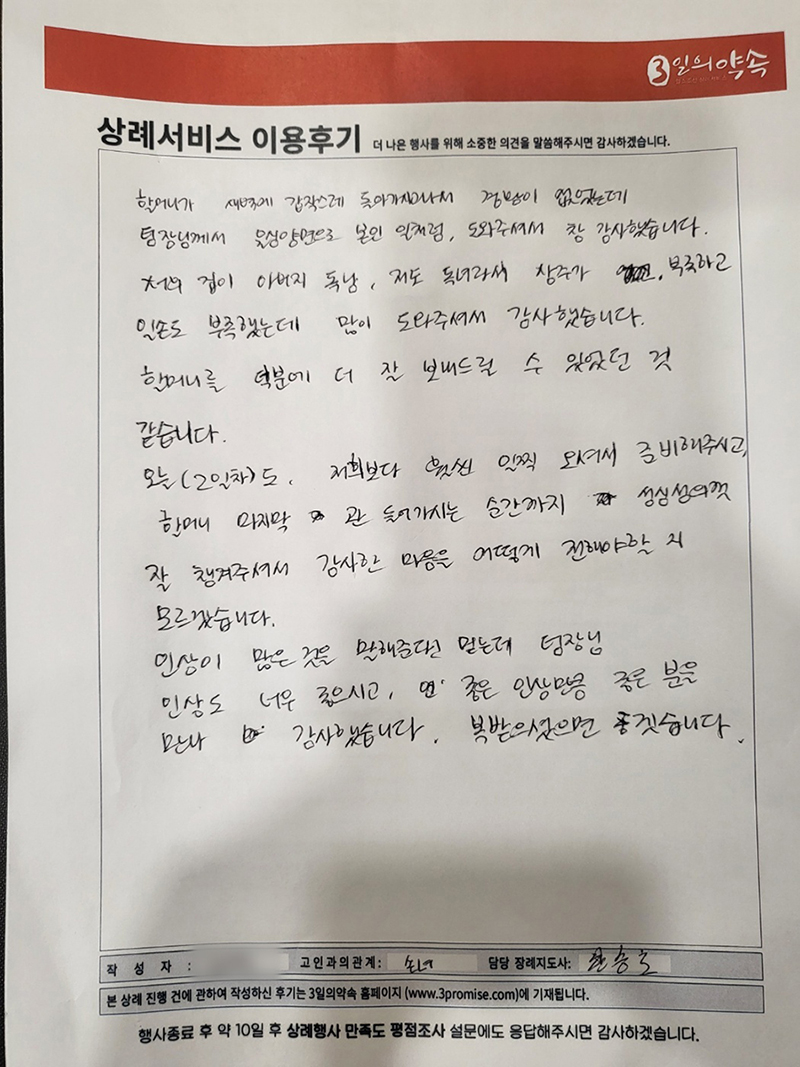 3일의약속
상례서비스 이용후기 더 나은 행사를 위해 소중한 의견을 말씀해주시면 감사하겠습니다.
할머니가 새벽에 갑작스레 돌아가시다나서 경황이 없었는데
팀장님께서 물심양면으로 본인 일처럼, 도와주셔서 참 감사했습니다.
저희 집이 아버지 독남, 저도 독녀라서 상주가 부족하고
일손도 부족했는데 많이 도와주셔서 감사했습니다.
할머니를 덕분에 더 잘 보내드릴 수 있었던 것
같습니다.
오늘(2일차)도, 저희보다 훨씬 일찍 오셔서 준비해주시고,
할머니 마지막 관 들어가시는 순간까지 성심성의껏
잘 챙겨주셔서 감사한 마음을 어떻게 전해야할 지
모르겠습니다.
인상이 많은 것을 말해준다 믿는데 팀장님
인상도 너무 좋으시고, 좋은 인상만큼 좋은 분을
만나 감사했습니다. 복받으셨으면 좋겠습니다.
작 성 자 : 고인과의관계: 손녀 담당 장례지도사:
본 상례 진행 건에 관하여 작성하신 후기는 3일의약속 홈페이지 (www.3promise.com)에 기재됩니다.
행사종료 후 약 10일 후 상례행사 만족도 평점조사 설문에도 응답해주시면 감사하겠습니다.